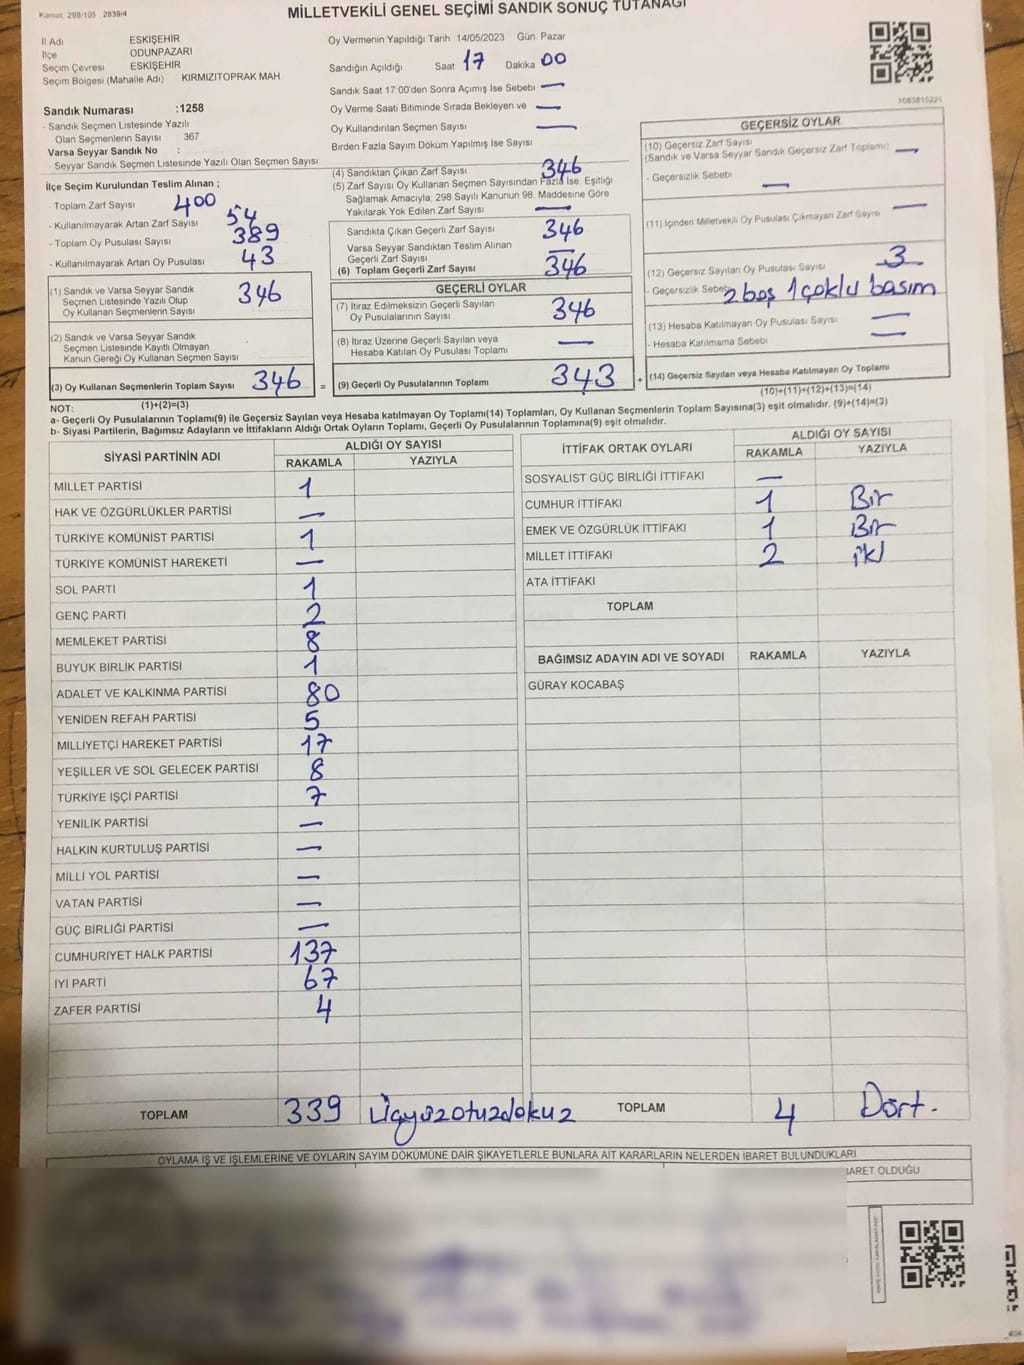 Kanun: 298/105 2839/4
MİLLETVEKİLİ GENEL SEÇİMİ SANDIK SONUÇ TUTANAĞI
İl Adı ESKİŞEHİR
İlçe ODUNPAZARI
Seçim Çevresi ESKİŞEHİR
Seçim Bölgesi (Mahalle Adı) KIRMIZITOPRAK MAH
Sandık Numarası :1258
- Sandık Seçmen Listesinde Yazılı
Olan Seçmenlerin Sayısı 367
Varsa Seyyar Sandık No :
- Seyyar Sandık Seçmen Listesinde Yazılı Olan Seçmen Sayısı
İlçe Seçim Kurulundan Teslim Alınan ;
- Toplam Zarf Sayısı 400
- Kullanılmayarak Artan Zarf Sayısı 54
- Toplam Oy Pusulası Sayısı 389
- Kullanılmayarak Artan Oy Pusulası 43
(1) Sandık ve Varsa Seyyar Sandık
Seçmen Listesinde Yazılı Olup
Oy Kullanan Seçmenlerin Sayısı 346
(2) Sandık ve Varsa Seyyar Sandık
Seçmen Listesinde Kayıtlı Olmayan
Kanun Gereği Oy Kullanan Seçmen Sayısı
(3) Oy Kullanan Seçmenlerin Toplam Sayısı 346 =
(1)+(2)=(3)
Oy Vermenin Yapıldığı Tarih 14/05/2023 Gün Pazar
Sandığın Açıldığı Saat 17 Dakika 00
Sandık Saat 17:00'den Sonra Açımış İse Sebebi —
Oy Verme Saati Bitiminde Sırada Bekleyen ve —
Oy Kullandırılan Seçmen Sayısı —
Birden Fazla Sayım Döküm Yapılmış İse Sayısı
(4) Sandıktan Çıkan Zarf Sayısı 346
(5) Zarf Sayısı Oy Kullanan Seçmen Sayısından Fazla İse, Eşitliği
Sağlamak Amacıyla; 298 Sayılı Kanunun 98. Maddesine Göre
Yakılarak Yok Edilen Zarf Sayısı —
Sandıkta Çıkan Geçerli Zarf Sayısı 346
Varsa Seyyar Sandıktan Teslim Alınan
Geçerli Zarf Sayısı —
(6) Toplam Geçerli Zarf Sayısı 346
GEÇERLİ OYLAR
(7) İtiraz Edilmeksizin Geçerli Sayılan
Oy Pusulalarının Sayısı 346
(8) İtiraz Üzerine Geçerli Sayılan veya
Hesaba Katılan Oy Pusulası Toplamı —
(9) Geçerli Oy Pusulalarının Toplamı 343 +
1083815221
GEÇERSİZ OYLAR
(10) Geçersiz Zarf Sayısı
(Sandık ve Varsa Seyyar Sandık Geçersiz Zarf Toplamı) —
- Geçersizlik Sebebi —
(11) İçinden Milletvekili Oy Pusulası Çıkmayan Zarf Sayısı —
(12) Geçersiz Sayılan Oy Pusulası Sayısı 3
- Geçersizlik Sebebi 2 boş 1 çoklu basım
(13) Hesaba Katılmayan Oy Pusulası Sayısı —
- Hesaba Katılmama Sebebi —
(14) Geçersiz Sayılan veya Hesaba Katılmayan Oy Toplamı
(10)+(11)+(12)+(13)=(14)
NOT:
a- Geçerli Oy Pusulalarının Toplamı(9) ile Geçersiz Sayılan veya Hesaba katılmayan Oy Toplamı(14) Toplamları, Oy Kullanan Seçmenlerin Toplam Sayısına(3) eşit olmalıdır. (9)+(14)=(3)
b- Siyasi Partilerin, Bağımsız Adayların ve İttifakların Aldığı Ortak Oyların Toplamı, Geçerli Oy Pusulalarının Toplamına(9) eşit olmalıdır.
SİYASİ PARTİNİN ADI ALDIĞI OY SAYISI
RAKAMLA YAZIYLA
MİLLET PARTİSİ 1
HAK VE ÖZGÜRLÜKLER PARTİSİ —
TÜRKİYE KOMÜNİST PARTİSİ 1
TÜRKİYE KOMÜNİST HAREKETİ —
SOL PARTİ 1
GENÇ PARTİ 2
MEMLEKET PARTİSİ 8
BÜYÜK BİRLİK PARTİSİ 1
ADALET VE KALKINMA PARTİSİ 80
YENİDEN REFAH PARTİSİ 5
MİLLİYETÇİ HAREKET PARTİSİ 17
YEŞİLLER VE SOL GELECEK PARTİSİ 8
TÜRKİYE İŞÇİ PARTİSİ 7
YENİLİK PARTİSİ —
HALKIN KURTULUŞ PARTİSİ —
MİLLİ YOL PARTİSİ —
VATAN PARTİSİ —
GÜÇ BİRLİĞİ PARTİSİ —
CUMHURİYET HALK PARTİSİ 137
İYİ PARTİ 67
ZAFER PARTİSİ 4
TOPLAM 339 üçyüzotuzdokuz
İTTİFAK ORTAK OYLARI ALDIĞI OY SAYISI
RAKAMLA YAZIYLA
SOSYALİST GÜÇ BİRLİĞİ İTTİFAKI —
CUMHUR İTTİFAKI 1 Bir
EMEK VE ÖZGÜRLÜK İTTİFAKI 1 Bir
MİLLET İTTİFAKI 2 iki
ATA İTTİFAKI
TOPLAM
BAĞIMSIZ ADAYIN ADI VE SOYADI RAKAMLA YAZIYLA
GÜRAY KOCABAŞ
TOPLAM 4 Dört.
OYLAMA İŞ VE İŞLEMLERİNE VE OYLARIN SAYIM DÖKÜMÜNE DAİR ŞİKAYETLERLE BUNLARA AİT KARARLARIN NELERDEN İBARET BULUNDUKLARI
İBARET OLDUĞU